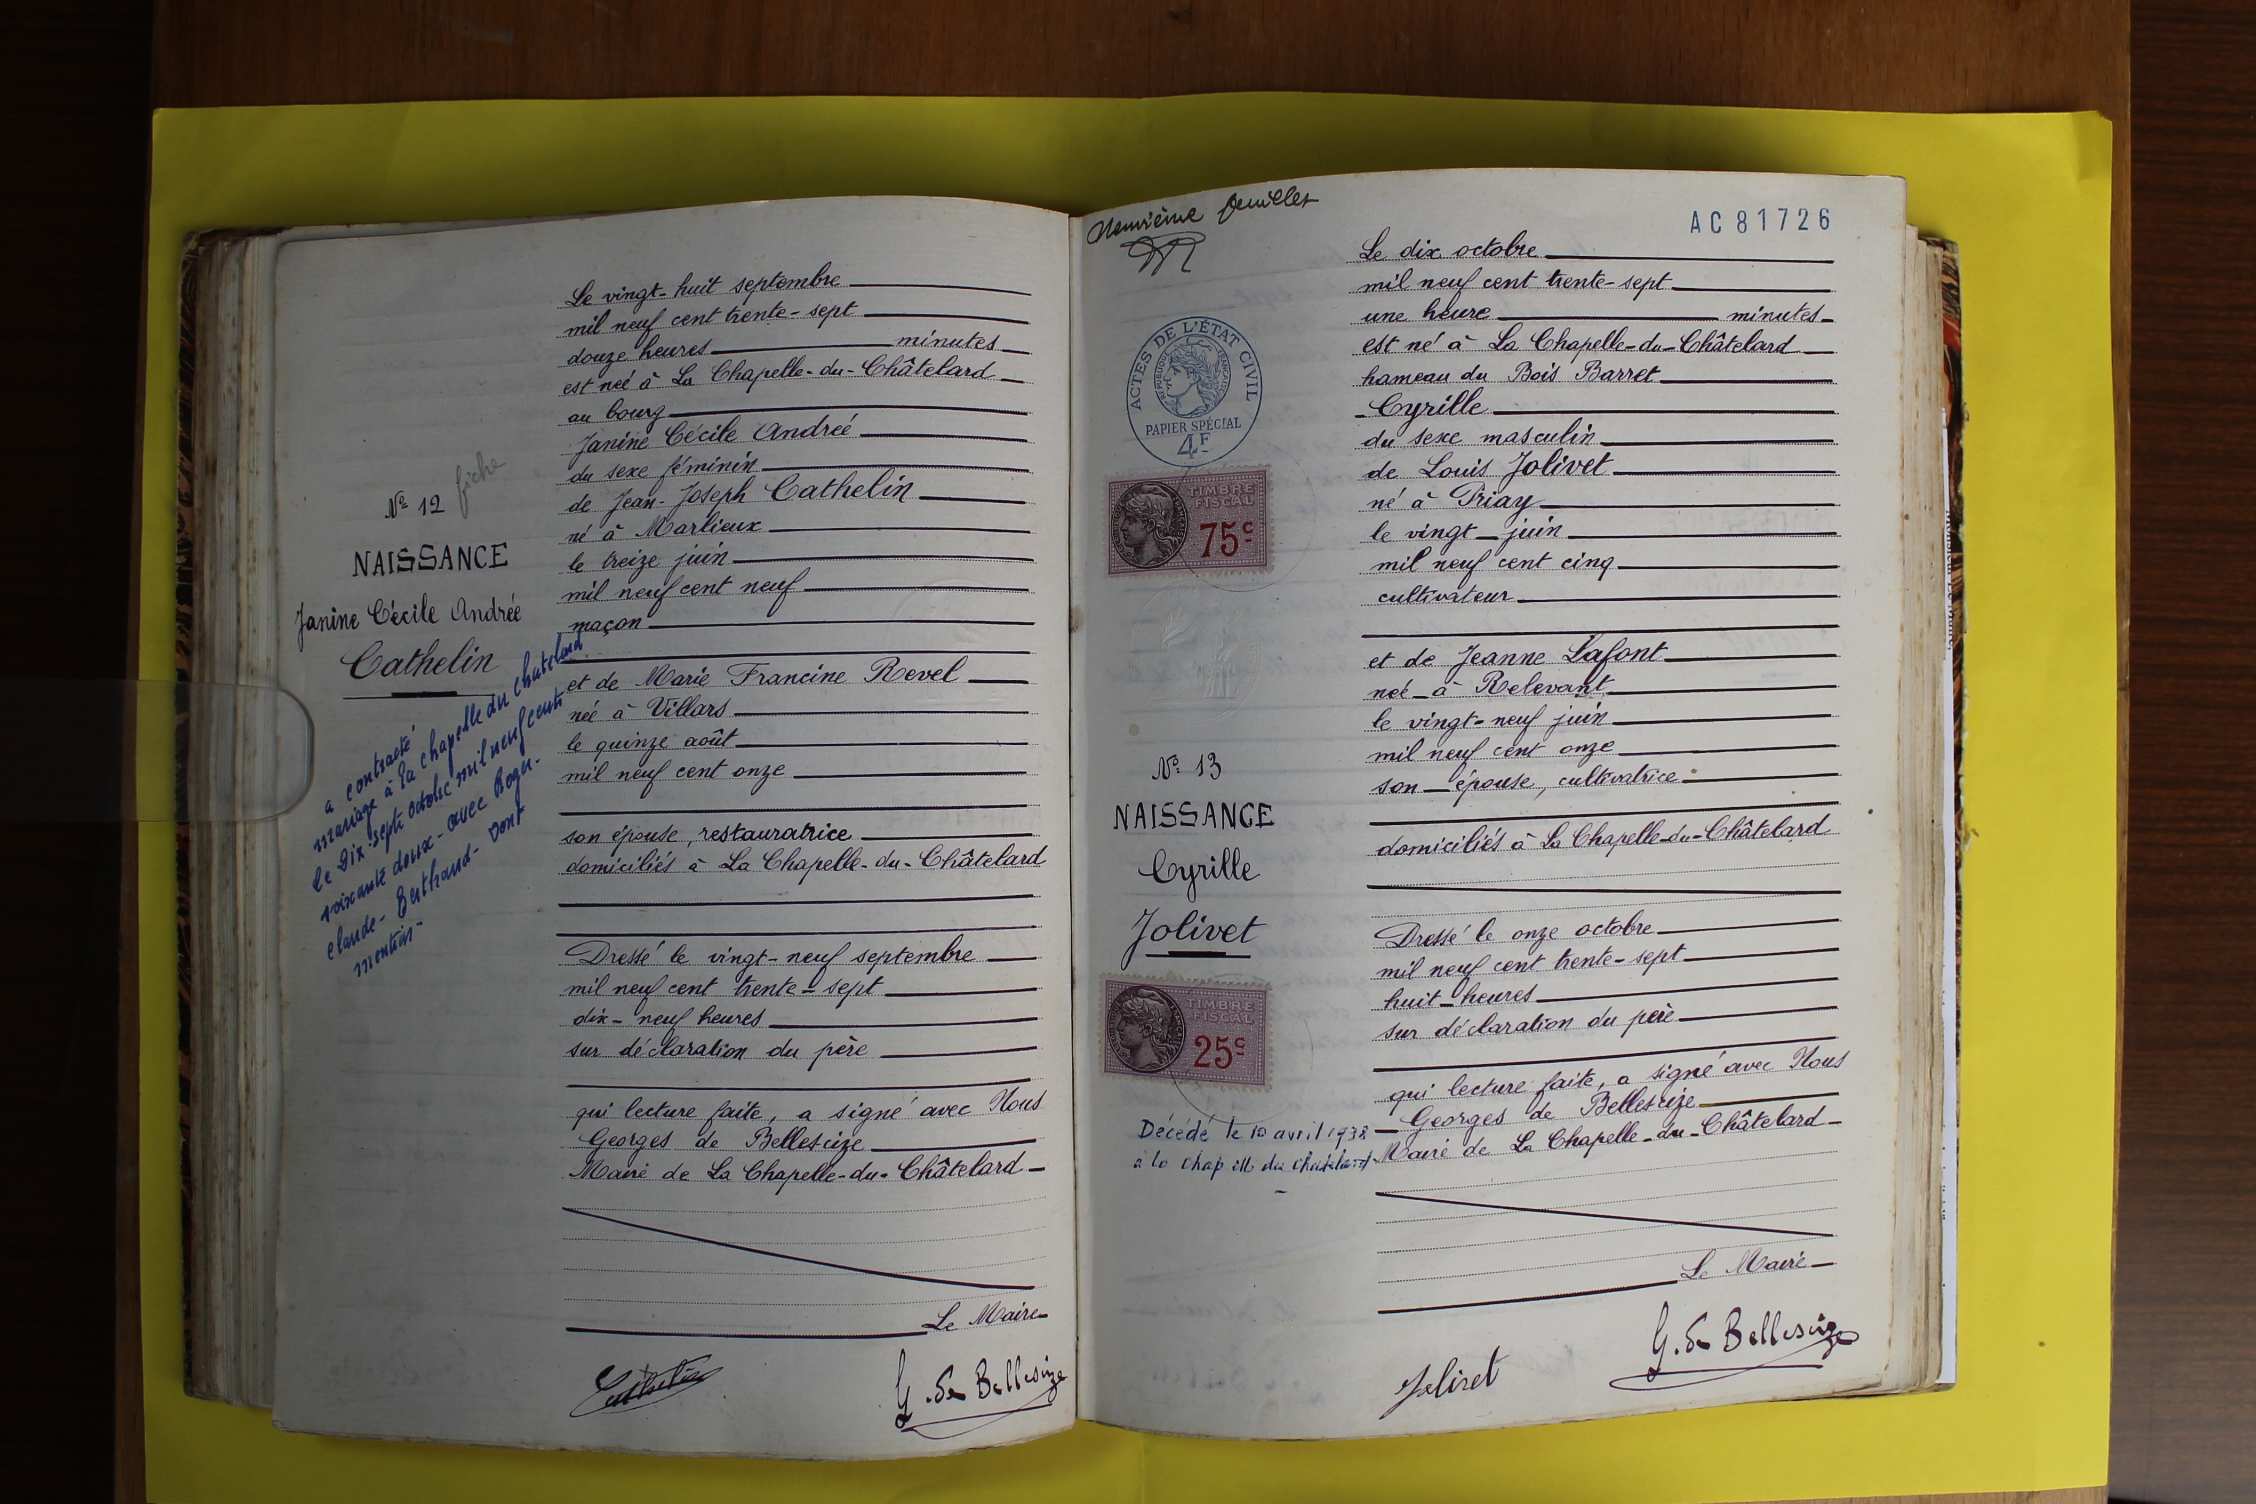 Nº 12 fiche
NAISSANCE
Janine Cécile Andrée
Cathelin
a contracté
mariage à la chapelle du Chatelard
le Dix sept octobre mil neuf cent
soixante deux - avec Roger -
claude - Berthaud - Dont
mention -
Le vingt-huit septembre
mil neuf cent trente-sept
douze heures minutes
est neé à La Chapelle-du-Châtelard
au bourg
Janine Cécile Andreé
du sexe féminin
de Jean-Joseph Cathelin
né à Marlieux
le treize juin
mil neuf cent neuf
maçon
et de Marie Francine Revel
née à Villars
le quinze août
mil neuf cent onze
son épouse, restauratrice
domiciliés à La Chapelle-du-Châtelard
Dressé le vingt-neuf septembre
mil neuf cent trente-sept
dix-neuf heures
sur déclaration du père
qui lecture faite, a signé avec Nous
Georges de Bellescize
Maire de La Chapelle-du-Châtelard
Le Maire
Cathelin
G. de Bellescize
Neuvième feuillet
AC 81726
ACTES DE L'ÉTAT CIVIL
RÉPUBLIQUE FRANÇAISE
PAPIER SPÉCIAL
4F
TIMBRE
FISCAL
75c
Nº 13
NAISSANCE
Cyrille
Jolivet
TIMBRE
FISCAL
25c
Décédé le 10 avril 1938
à la Chapelle du Chatelard
Le dix octobre
mil neuf cent trente-sept
une heure minutes
est né à La Chapelle-du-Châtelard
hameau du Bois Barret
Cyrille
du sexe masculin
de Louis Jolivet
né à Priay
le vingt juin
mil neuf cent cinq
cultivateur
et de Jeanne Lafont
neé à Relevant
le vingt-neuf juin
mil neuf cent onze
son épouse, cultivatrice
domiciliés à La Chapelle-du-Châtelard
Dressé le onze octobre
mil neuf cent trente-sept
huit heures
sur déclaration du père
qui lecture faite, a signé avec Nous
Georges de Bellescize
Maire de La Chapelle-du-Châtelard
Le Maire
Jolivet
G. de Bellescize